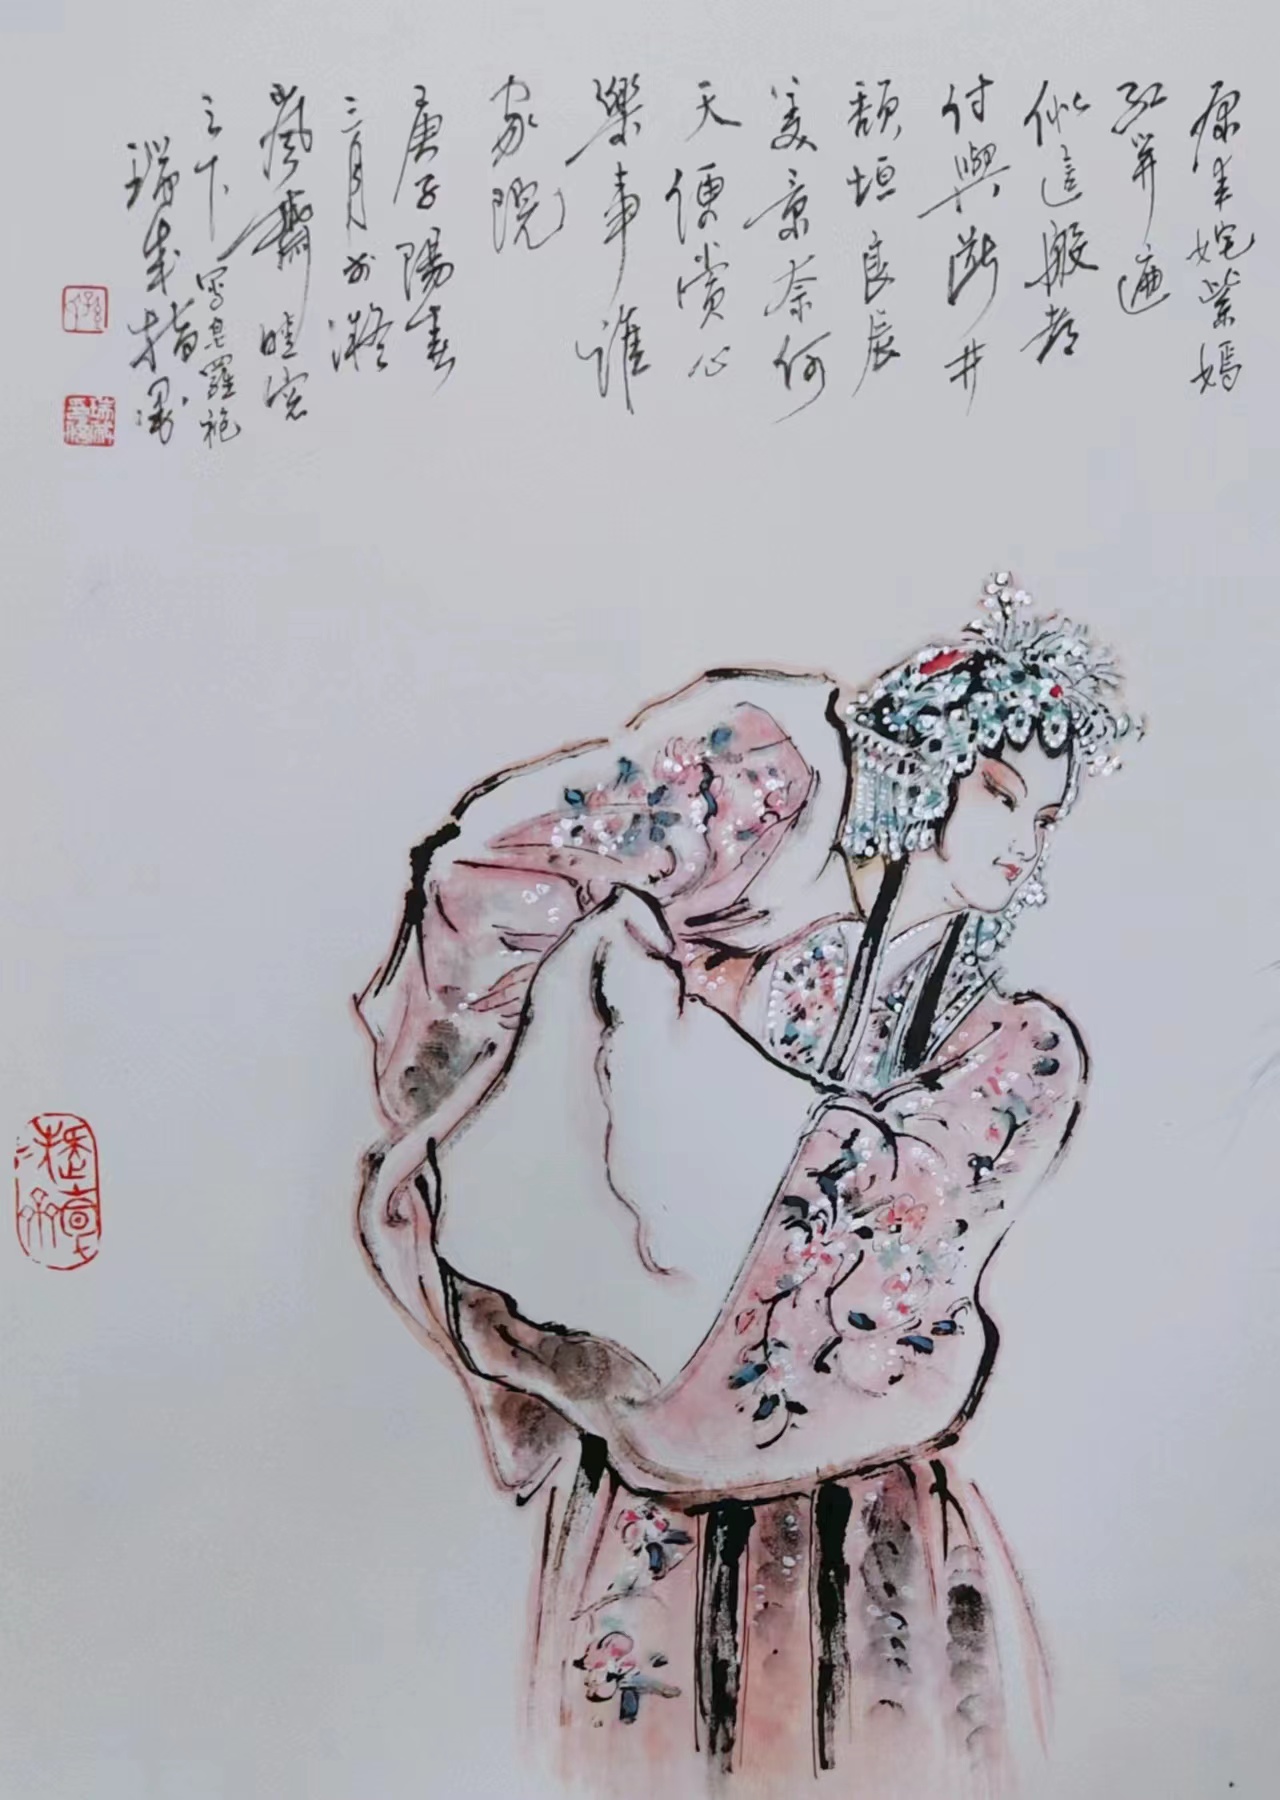 原来姹紫嫣
红开遍
似這般都
付與断井
頹垣良辰
美景奈何
天便赏心
樂事誰
家院
庚子陽春
三月於凝
齋晴窓
之下寫皂羅袍
瑞成指墨